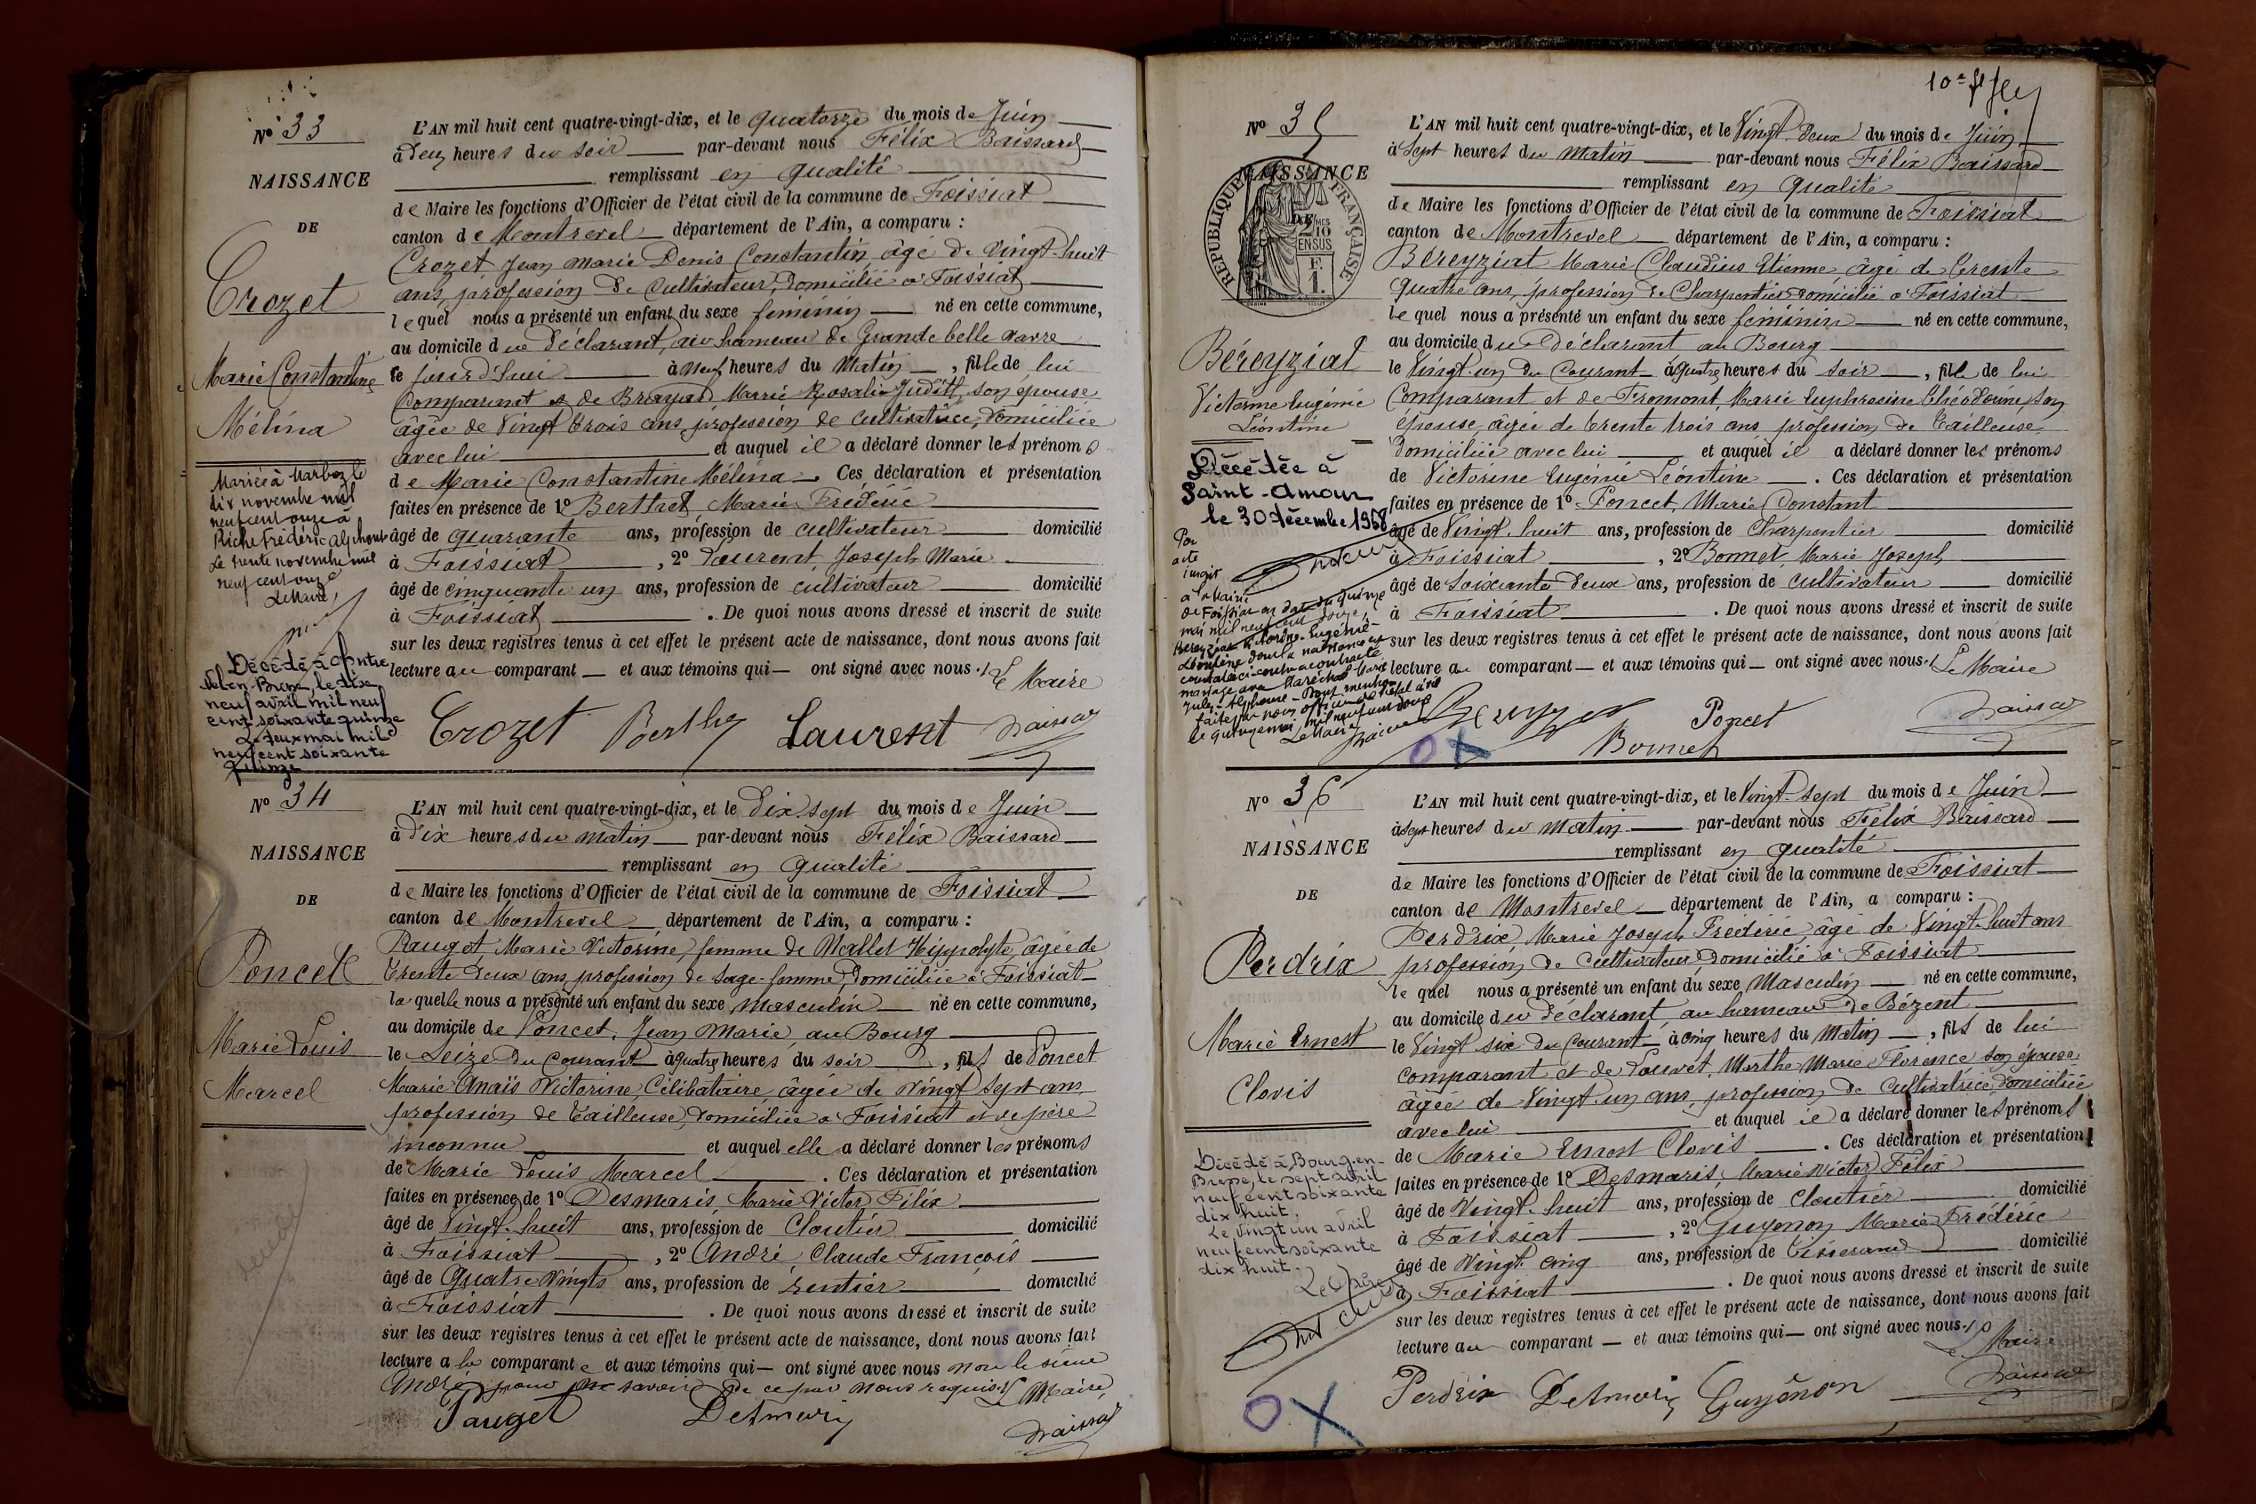 Nº 33
NAISSANCE
DE
Crozet
Marie Constantine
Mélina
Mariée à Marboz le
dix novembre mil
neuf cent onze à
Riche Frédéric Alphonse
Le trente novembre mil
neuf cent onze
Le Maire,
Décédé à
le dix
neuf avril mil neuf
cent soixante quinze
Le deux mai mil
neuf cent soixante
quinze
L'AN mil huit cent quatre-vingt-dix, et le quatorze du mois de Juin
à deux heures du soir par-devant nous Félix Baissard
remplissant en qualité
de Maire les fonctions d'Officier de l'état civil de la commune de Foissiat
canton de Montrevel département de l'Ain, a comparu :
Crozet Jean Marie Denis Constantin âgé de vingt-huit
ans, profession de Cultivateur, domicilié à Foissiat
lequel nous a présenté un enfant du sexe féminin né en cette commune,
au domicile du déclarant, au hameau de Grande belle
le jour d'hui à neuf heures du matin, fille de lui
comparant et de Brayard Marie Rosalie Judith, son épouse
âgée de vingt trois ans, profession de cultivatrice, domiciliée
avec lui et auquel il a déclaré donner les prénoms
de Marie Constantine Mélina. Ces déclaration et présentation
faites en présence de 1º Berthet, Marie Frédéric
âgé de quarante ans, profession de cultivateur domicilié
à Foissiat, 2º Laurent, Joseph Marie
âgé de cinquante un ans, profession de cultivateur domicilié
à Foissiat. De quoi nous avons dressé et inscrit de suite
sur les deux registres tenus à cet effet le présent acte de naissance, dont nous avons fait
lecture au comparant et aux témoins qui ont signé avec nous. Le Maire
Crozet Laurent Baissard
Nº 34
NAISSANCE
DE
Poncet
Marie Louis
Marcel
L'AN mil huit cent quatre-vingt-dix, et le dix sept du mois de Juin
à dix heures du matin par-devant nous Félix Baissard
remplissant en qualité
de Maire les fonctions d'Officier de l'état civil de la commune de Foissiat
canton de Montrevel département de l'Ain, a comparu :
Pauget, Marie Victorine, femme de Mallet Hippolyte, âgée de
trente deux ans, profession de sage-femme, domiciliée à Foissiat
laquelle nous a présenté un enfant du sexe masculin né en cette commune,
au domicile de Poncet, Jean Marie, au Bourg
le seize du courant à quatre heures du soir, fils de Poncet
Marie Anaïs Victorine, Célibataire, âgée de vingt sept ans,
profession de tailleuse, domiciliée à Foissiat et de père
inconnu et auquel elle a déclaré donner les prénoms
de Marie Louis Marcel. Ces déclaration et présentation
faites en présence de 1º Desmaris, Marie Victor Félix
âgé de vingt-huit ans, profession de Cloutier domicilié
à Foissiat, 2º André Claude François
âgé de quatre vingts ans, profession de rentier domicilié
à Foissiat. De quoi nous avons dressé et inscrit de suite
sur les deux registres tenus à cet effet le présent acte de naissance, dont nous avons fait
lecture à la comparante et aux témoins qui ont signé avec nous non le sieur
André pour ne savoir de ce par nous requis. Le Maire,
Pauget Desmaris Baissard
Nº 35
NAISSANCE
RÉPUBLIQUE FRANÇAISE
2/10 EN SUS
Béreyziat
Victorine Eugénie
Léontine
Décédée à
Saint-Amour
le 30 décembre 1968
Par
acte
inscrit
à la mairie
de Foissiat en date du quinze
mai mil neuf cent douze,
Béreyziat Victorine Eugénie
Léontine dont la naissance est
constatée ci-contre a contracté
mariage avec Maréchal Marie
Jules Alphonse
L'AN mil huit cent quatre-vingt-dix, et le vingt-deux du mois de Juin
à sept heures du matin par-devant nous Félix Baissard
remplissant en qualité
de Maire les fonctions d'Officier de l'état civil de la commune de Foissiat
canton de Montrevel département de l'Ain, a comparu :
Béreyziat Marie Claudius Etienne âgé de trente
quatre ans, profession de Charpentier domicilié à Foissiat
lequel nous a présenté un enfant du sexe féminin né en cette commune,
au domicile du déclarant au Bourg
le vingt-un du courant à quatre heures du soir, fille de lui
comparant et de Fromont, Marie Euphrosine Théodorine, son
épouse, âgée de trente trois ans profession de tailleuse
domiciliée avec lui et auquel il a déclaré donner les prénoms
de Victorine Eugénie Léontine. Ces déclaration et présentation
faites en présence de 1º Poncet, Marie Constant
âgé de vingt-huit ans, profession de Charpentier domicilié
à Foissiat, 2º Bonnet, Marie Joseph
âgé de soixante deux ans, profession de cultivateur domicilié
à Foissiat. De quoi nous avons dressé et inscrit de suite
sur les deux registres tenus à cet effet le présent acte de naissance, dont nous avons fait
lecture au comparant et aux témoins qui ont signé avec nous. Le Maire
Poncet Baissard
Bonnet
Nº 36
NAISSANCE
DE
Perdrix
Marie Ernest
Clovis
Décédé à Bourg-en-
Bresse, le sept avril
neuf cent soixante
dix huit.
Le vingt un avril
neuf cent soixante
dix huit.
L'AN mil huit cent quatre-vingt-dix, et le vingt-sept du mois de Juin
à sept heures du matin par-devant nous Félix Baissard
remplissant en qualité
de Maire les fonctions d'Officier de l'état civil de la commune de Foissiat
canton de Montrevel département de l'Ain, a comparu :
Perdrix, Marie Joseph Frédéric, âgé de vingt-huit ans
profession de cultivateur, domicilié à Foissiat
lequel nous a présenté un enfant du sexe Masculin né en cette commune,
au domicile du déclarant, au hameau de Bézent
le vingt six du courant à cinq heures du matin, fils de lui
comparant et de Louvet, Marthe Marie Florence, son épouse
âgée de vingt-un ans, profession de cultivatrice domiciliée
avec lui et auquel il a déclaré donner les prénoms
de Marie Ernest Clovis. Ces déclaration et présentation
faites en présence de 1º Desmaris, Marie Victor Félix
âgé de vingt-huit ans, profession de cloutier domicilié
à Foissiat, 2º Guyenon Marie Frédéric
âgé de vingt cinq ans, profession de tisserand domicilié
à Foissiat. De quoi nous avons dressé et inscrit de suite
sur les deux registres tenus à cet effet le présent acte de naissance, dont nous avons fait
lecture au comparant et aux témoins qui ont signé avec nous. Le Maire
Perdrix Desmaris Guyénon Baissard